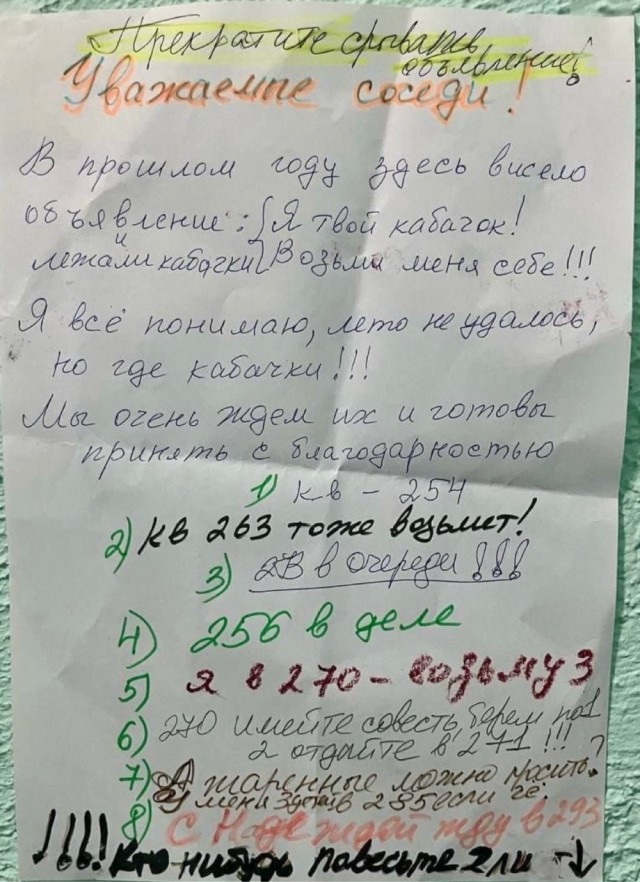 Прекратите срывать
объявление!
Уважаемые соседи!
В прошлом году здесь висело
объявление: Я твой кабачок!
и
лежали кабачки Возьми меня себе!!!
Я всё понимаю, лето не удалось,
но где кабачки!!!
Мы очень ждем их и готовы
принять с благодарностью
1) кв - 254
2) кв 263 тоже возьмет!
3) в очереди!!!
4) 256 в деле
5) Я в 270 - возьму 3
6) 270 имейте совесть берем по 1
2 отдайте в 271!!!
7) А жаренные можно просить?
У меня в 295 если чё.
8) С Надеждой жду в 293
!!!! Кто нибудь повесьте 2 ли ↓